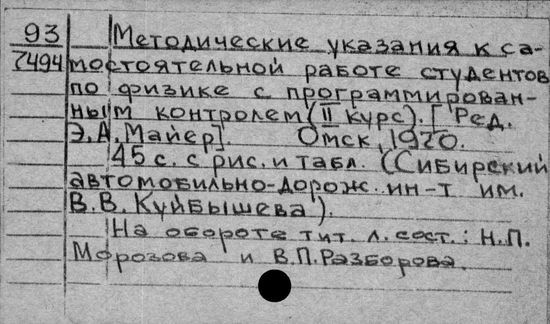 93 Методические указания к са-
7494 мостоятельной работе студентов
по физике с программирован-
ным контролем (II курс). [Ред.
Э.А. Майер]. Омск, 1970.
45 с. с рис. и табл. (Сибирский
автомобильно-дорож. ин-т им.
В.В. Куйбышева).
На обороте тит. л. сост.: Н.П.
Морозова и В.П. Разборова.